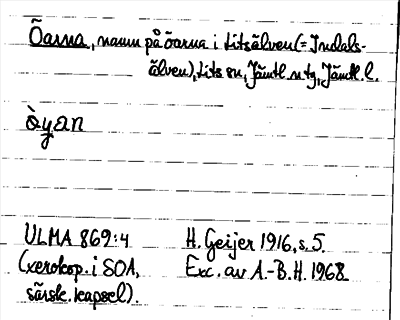 Öarna, namn på öarna i Litsälven (= Indals-
älven), Lits sn, Jämtl. n tg, Jämtl. l.
ò̀yan
ULMA 869:4 H. Geijer 1916, s. 5.
(xerokop. i SOA, Exc. av A.-B.H. 1968
särsk. kapsel).